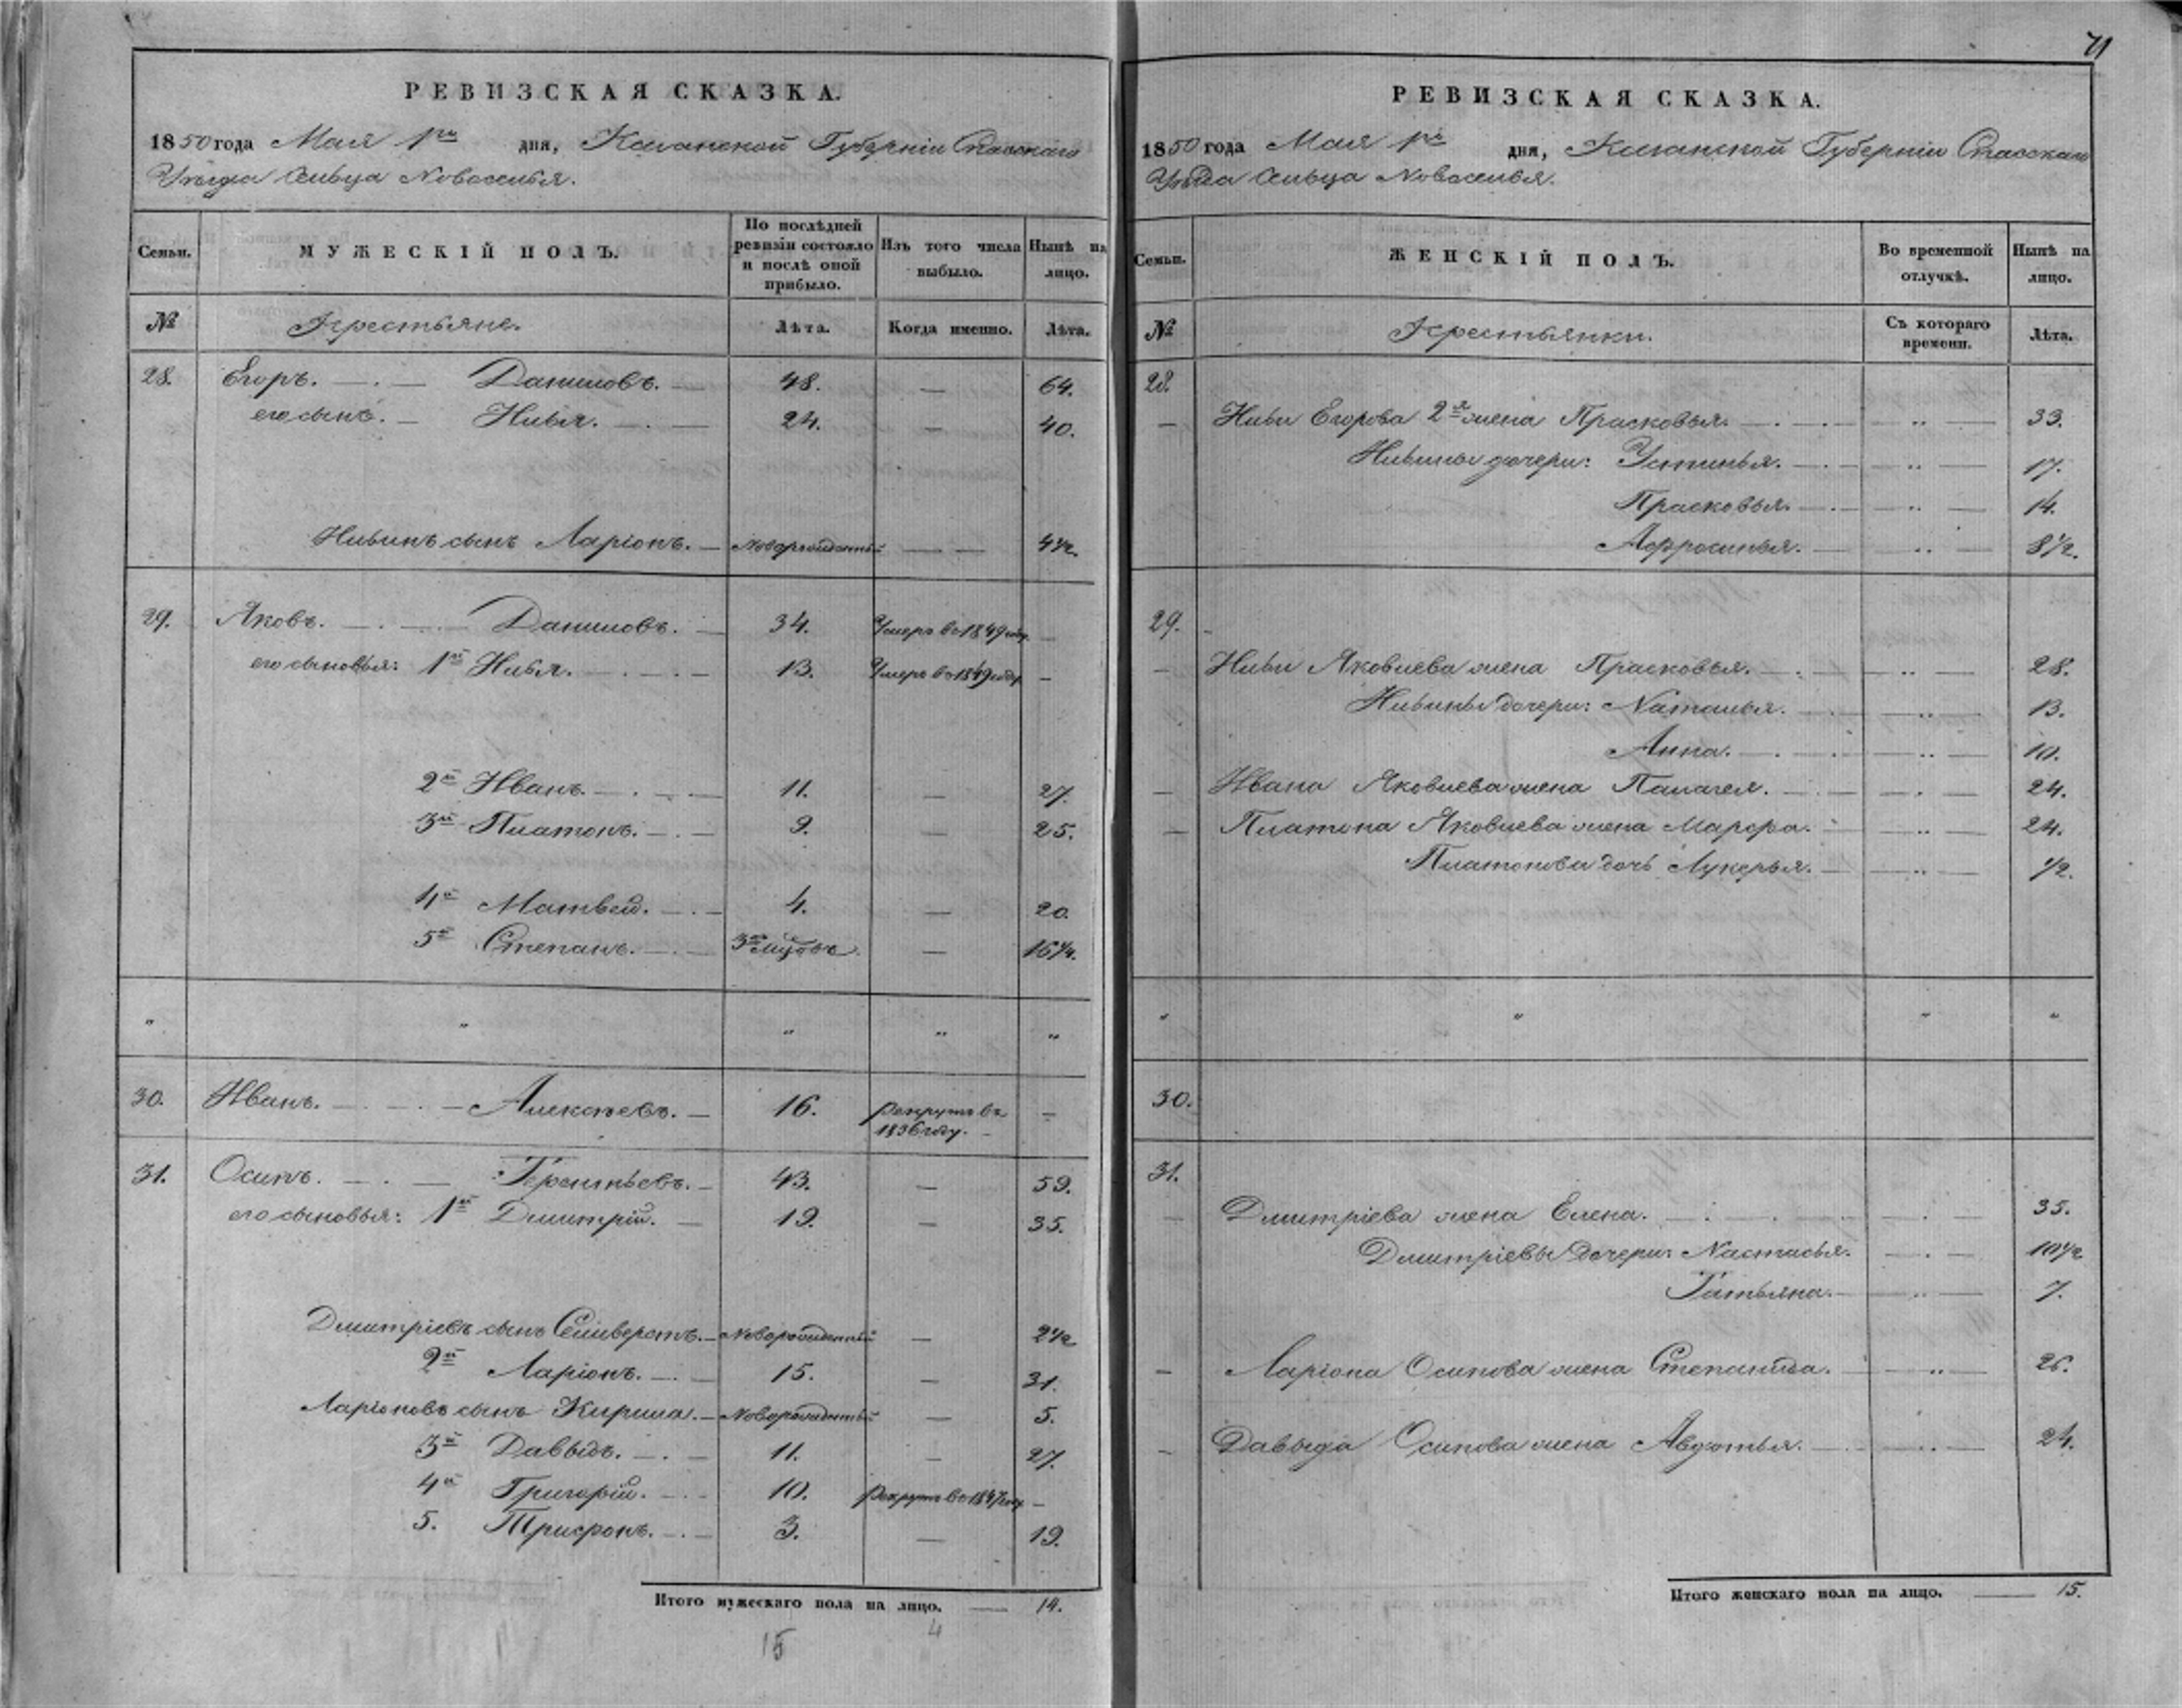 РЕВИЗСКАЯ СКАЗКА.
1850 года Мая 1го дня, Казанской Губерніи Спасскаго
Уѣзда Сельца Новоселья.
Семьи.
МУЖЕСКІЙ ПОЛЪ.
По послѣдней ревизіи состояло и послѣ оной прибыло.
Изъ того числа выбыло.
Нынѣ на лицо.
№
Крестьяне.
Лѣта.
Когда именно.
Лѣта.
28. Егоръ. — Даниловъ. — 48. — 64.
его сынъ. — Илья. — 24. — 40.
Ильинъ сынъ Ларіонъ. — Новорожденный — 4 1/2.
29. Яковъ. — Даниловъ. — 34. Умеръ въ 1849 году. —
его сыновья: 1й Илья. — 13. Умеръ въ 1849 году. —
2й Иванъ. — 11. — 27.
3й Платонъ. — 9. — 25.
4й Матвей. — 4. — 20.
5й Степанъ. — 3хъ мѣсяцовъ — 16 1/4.
" " " " "
30. Иванъ. — Алексѣевъ. — 16. рекрутъ въ 1836 году. —
31. Осипъ. — Терентьевъ. — 43. — 59.
его сыновья: 1й Дмитрій. — 19. — 35.
Дмитріевъ сынъ Селиверстъ. — Новорожденный — 2 1/2
2й Ларіонъ. — 15. — 31.
Ларіоновъ сынъ Кирила. — Новорожденный — 5.
3й Давыдъ. — 11. — 27.
4й Григорій. — 10. рекрутъ въ 1847 году —
5. Трифонъ. — 3. — 19.
Итого мужескаго пола на лицо. — 14.
15 4
71
РЕВИЗСКАЯ СКАЗКА.
1850 года Мая 1го дня, Казанской Губерніи Спасскаго
Уѣзда Сельца Новоселья.
Семьи.
ЖЕНСКІЙ ПОЛЪ.
Во временной отлучкѣ.
Нынѣ на лицо.
№
Крестьянки.
Съ котораго времени.
Лѣта.
28.
— Ильи Егорова 2я жена Прасковья. — " — 33.
Ильины дочери: Устинья. — " — 17.
Прасковья. — " — 14.
Афросинья. — " — 8 1/2.
29.
— Ильи Яковлева жена Прасковья. — " — 28.
Ильины дочери: Наталья. — " — 13.
Анна. — " — 10.
— Ивана Яковлева жена Палагея. — " — 24.
— Платона Яковлева жена Марфа. — " — 24.
Платонова дочь Лукерья. — " — 1/2.
" " " "
30.
31.
— Дмитріева жена Елена. — " — 35.
Дмитріевы дочери: Настасья. — " — 10 1/2
Татьяна. — " — 7.
— Ларіона Осипова жена Степанида. — " — 26.
— Давыда Осипова жена Авдотья. — " — 24.
Итого женскаго пола на лицо. — 15.